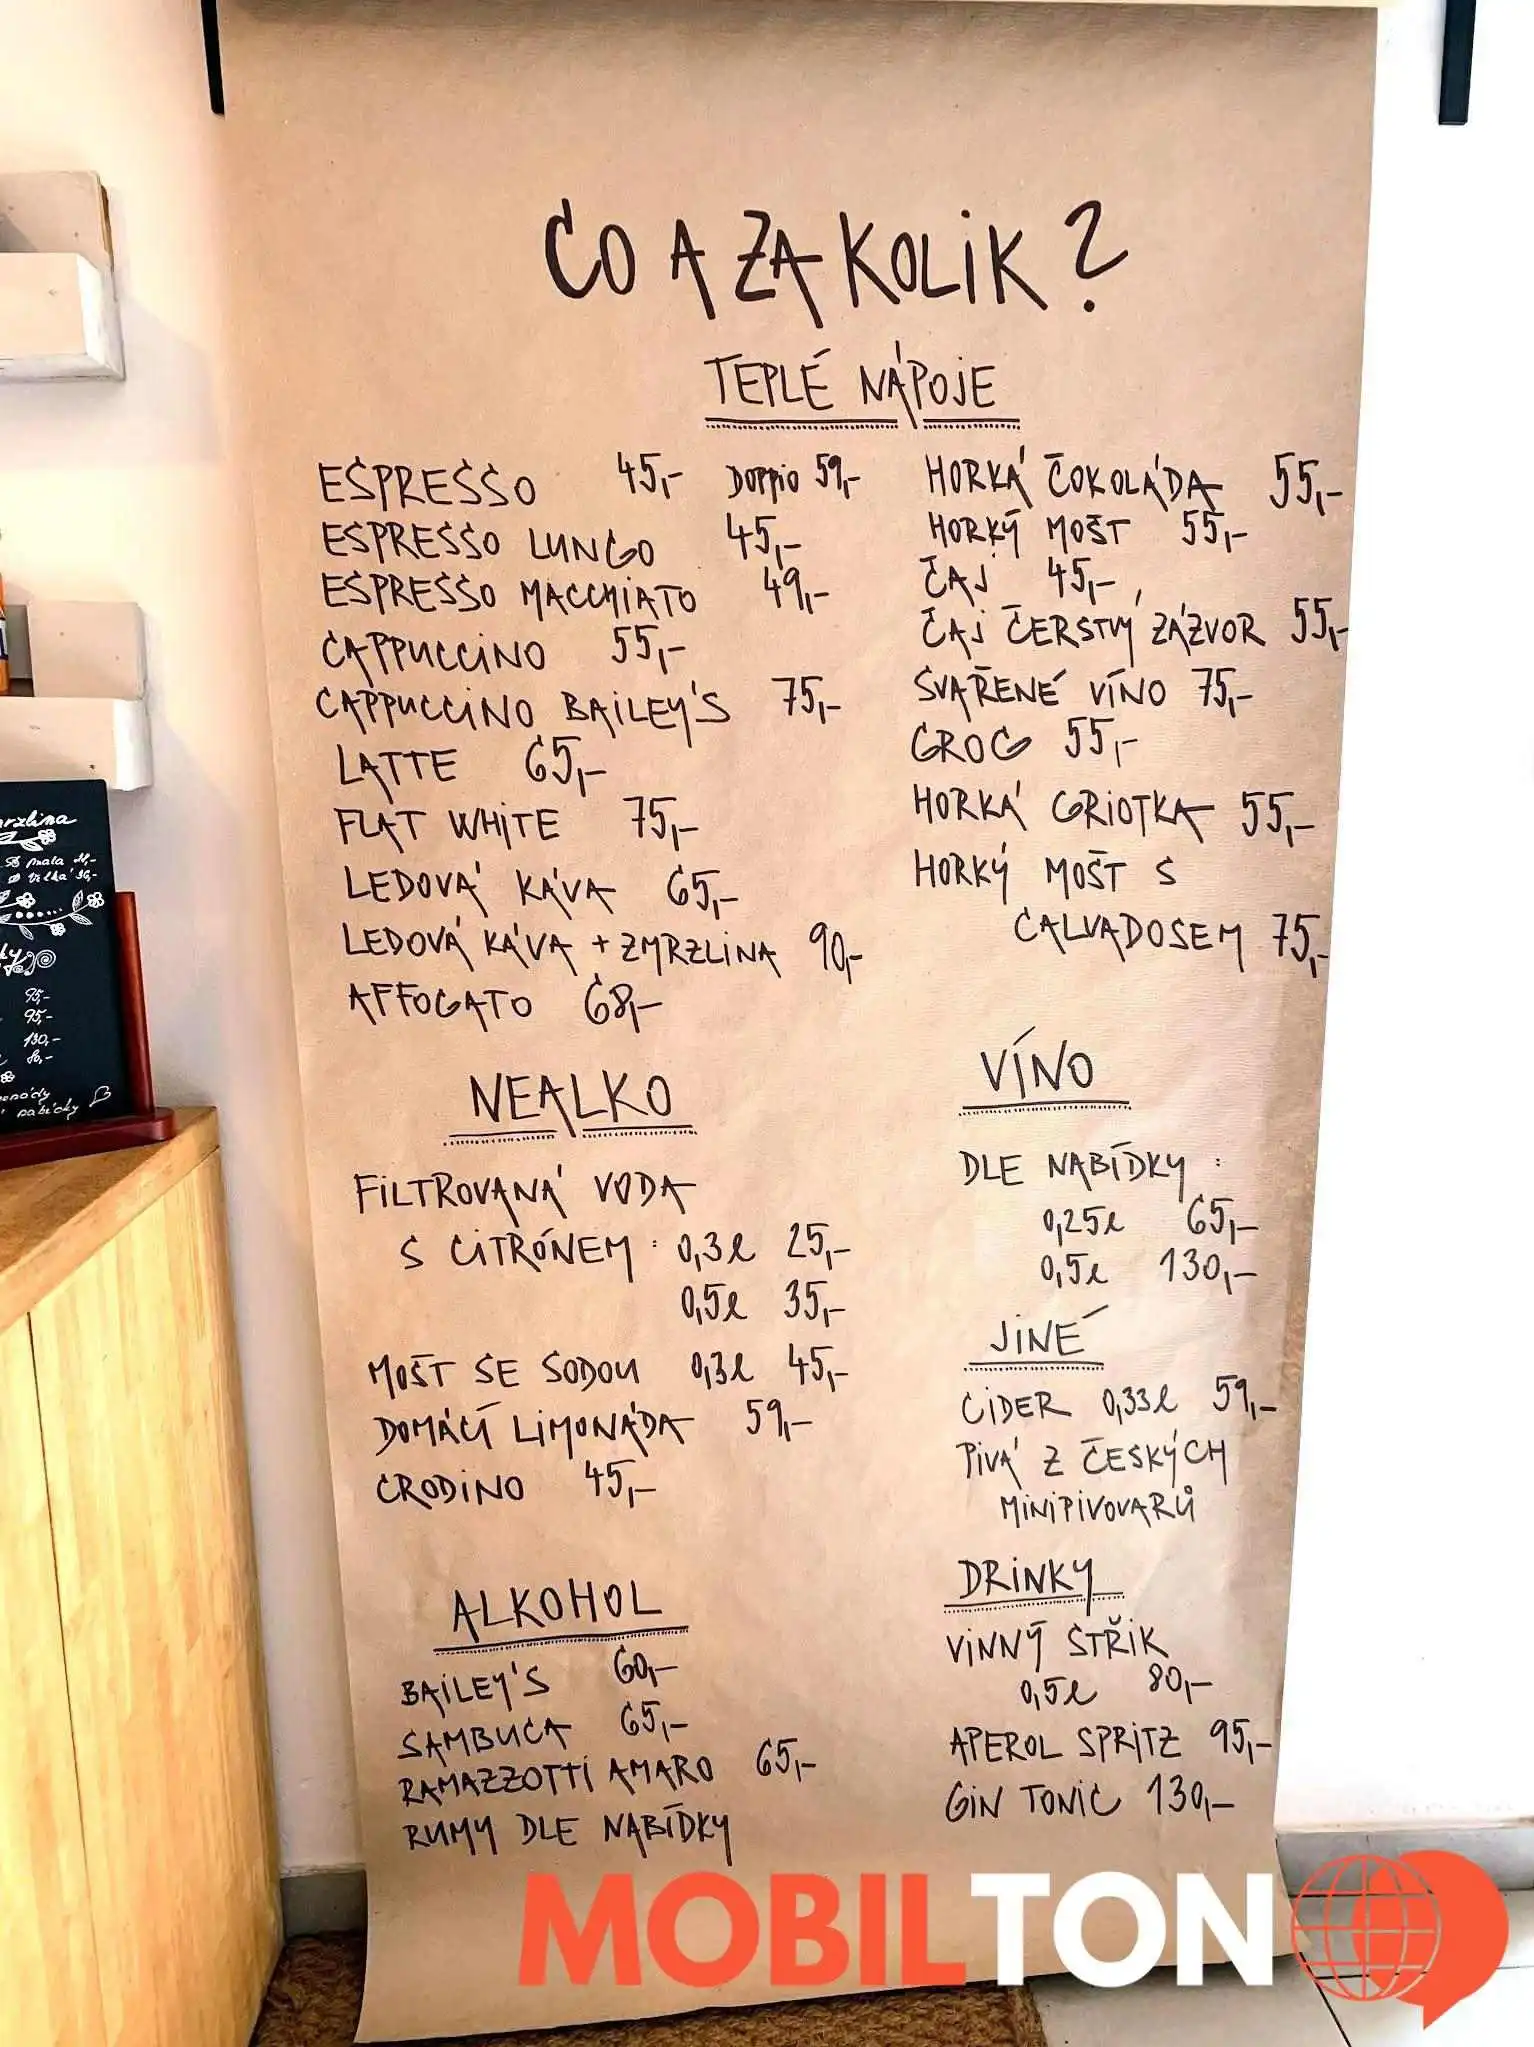 CO A ZA KOLIK?
TEPLÉ NÁPOJE
ESPRESSO 45,- DOPPIO 59,-
ESPRESSO LUNGO 45,-
ESPRESSO MACCHIATO 49,-
CAPPUCCINO 55,-
CAPPUCCINO BAILEY'S 75,-
LATTE 65,-
FLAT WHITE 75,-
LEDOVÁ KÁVA 65,-
LEDOVÁ KÁVA + ZMRZLINA 90,-
AFFOGATO 68,-
HORKÁ ČOKOLÁDA 55,-
HORKÝ MOŠT 55,-
ČAJ 45,-
ČAJ ČERSTVÝ ZÁZVOR 55,-
SVAŘENÉ VÍNO 75,-
GROG 55,-
HORKÁ GRIOTKA 55,-
HORKÝ MOŠT S
CALVADOSEM 75,-
NEALKO
FILTROVANÁ VODA
S CITRÓNEM: 0,3l 25,-
0,5l 35,-
MOŠT SE SODOU 0,3l 45,-
DOMÁCÍ LIMONÁDA 59,-
CRODINO 45,-
VÍNO
DLE NABÍDKY:
0,25l 65,-
0,5l 130,-
JINÉ
CIDER 0,33l 59,-
PIVA Z ČESKÝCH
MINIPIVOVARŮ
ALKOHOL
BAILEY'S 60,-
SAMBUCA 65,-
RAMAZZOTTI AMARO 65,-
RUMY DLE NABÍDKY
DRINKY
VINNÝ STŘIK
0,5l 80,-
APEROL SPRITZ 95,-
GIN TONIC 130,-
malá
Velká
95,-
95,-
130,-
80,-
MOBILTON